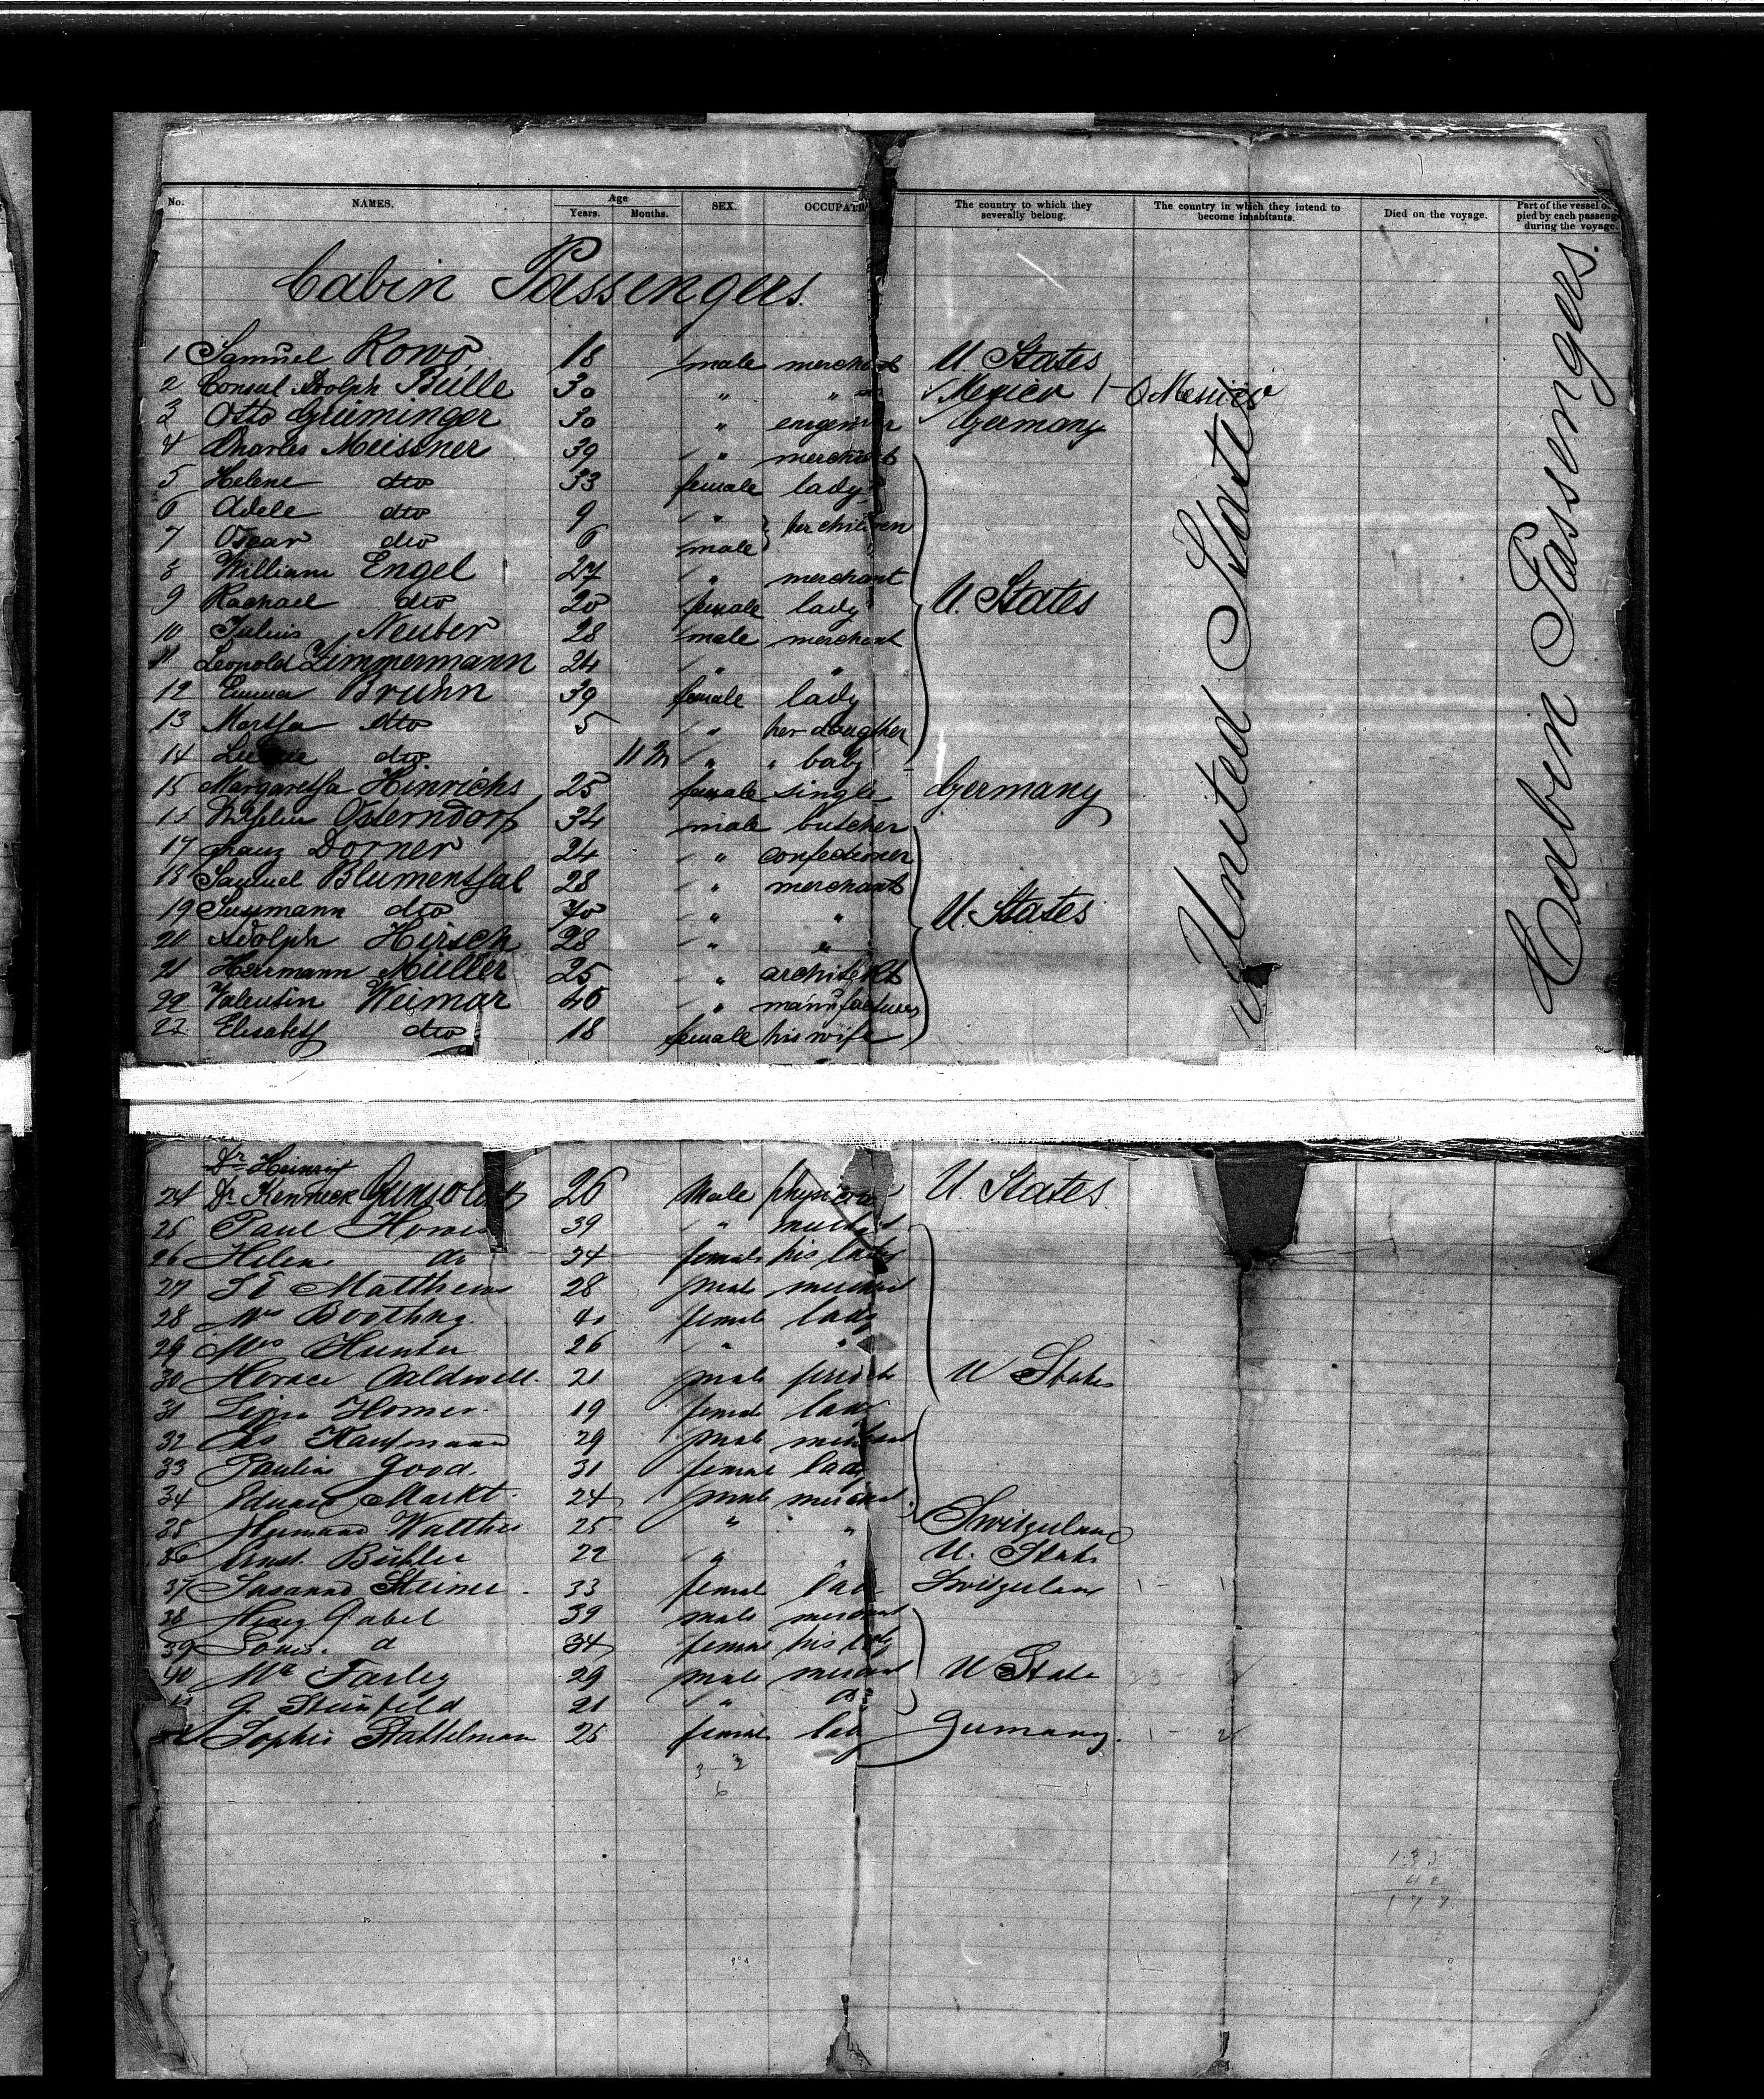 No. NAMES. Age Years. Months. SEX. OCCUPATI The country to which they severally belong. The country in which they intend to become inhabitants. Died on the voyage. Part of the vessel oc pied by each passeng during the voyage.
Cabin Passengers.
1 Samuel 18 male merchant U. States
2 Consul Adolph Bülle 30 " " Mexico Mexico
3 Otto Grüminger 30 " engenier Germany
4 Charles Meissner 39 " merchant
5 Helene dto 33 female lady
6 Adele dto 9 " her children
7 Oscar dto 6 male
8 William Engel 27 " merchant
9 Rachael dto 20 female lady U. States
10 Julius Neuber 28 male merchant
11 Leopold Zimmermann 24 " "
12 Emma Bruhn 39 female lady
13 Martha dto 5 " her daughter
14 dto 11 M " " baby
15 Margaretha Hinrichs 25 female single Germany
Osterndorf 34 male butcher
17 Franz Dorner 24 " confectioner
18 Samuel Blumenthal 28 " merchant
19 dto 70 " " U. States
20 Adolph Hirsch 28 " "
21 Herrmann Müller 25 " architekt
22 Valentin Weimar 46 " manufacturer
Elisabeth dto 18 female his wife
United States
Cabin Passengers.
Dr Heinrich
24 Dr 26 Male physician U. States
25 Paul 39 " merchant
26 Helene do 24 female his lady
27 Matthews 28 male merchant
28 Mrs 40 female lady
29 Mrs Hunter 26 " "
30 Horace Caldwell 21 male U States
31 Homer 19 female lady
32 Kaufmann 29 male merchant
33 Pauline Good 31 female lady
34 Eduard Markt 24 male merchant
35 Hermann Walther 25 " " Switzerland
36 Ernst Bühler 22 " U. States
37 Susanna Steiner 33 female lady Switzerland
38 Henry Gabel 39 male merchant
39 34 female his lady
40 Mr Farley 29 male merchant U State
G. Steinfeld 21 "
Sophie 25 female lady Germany